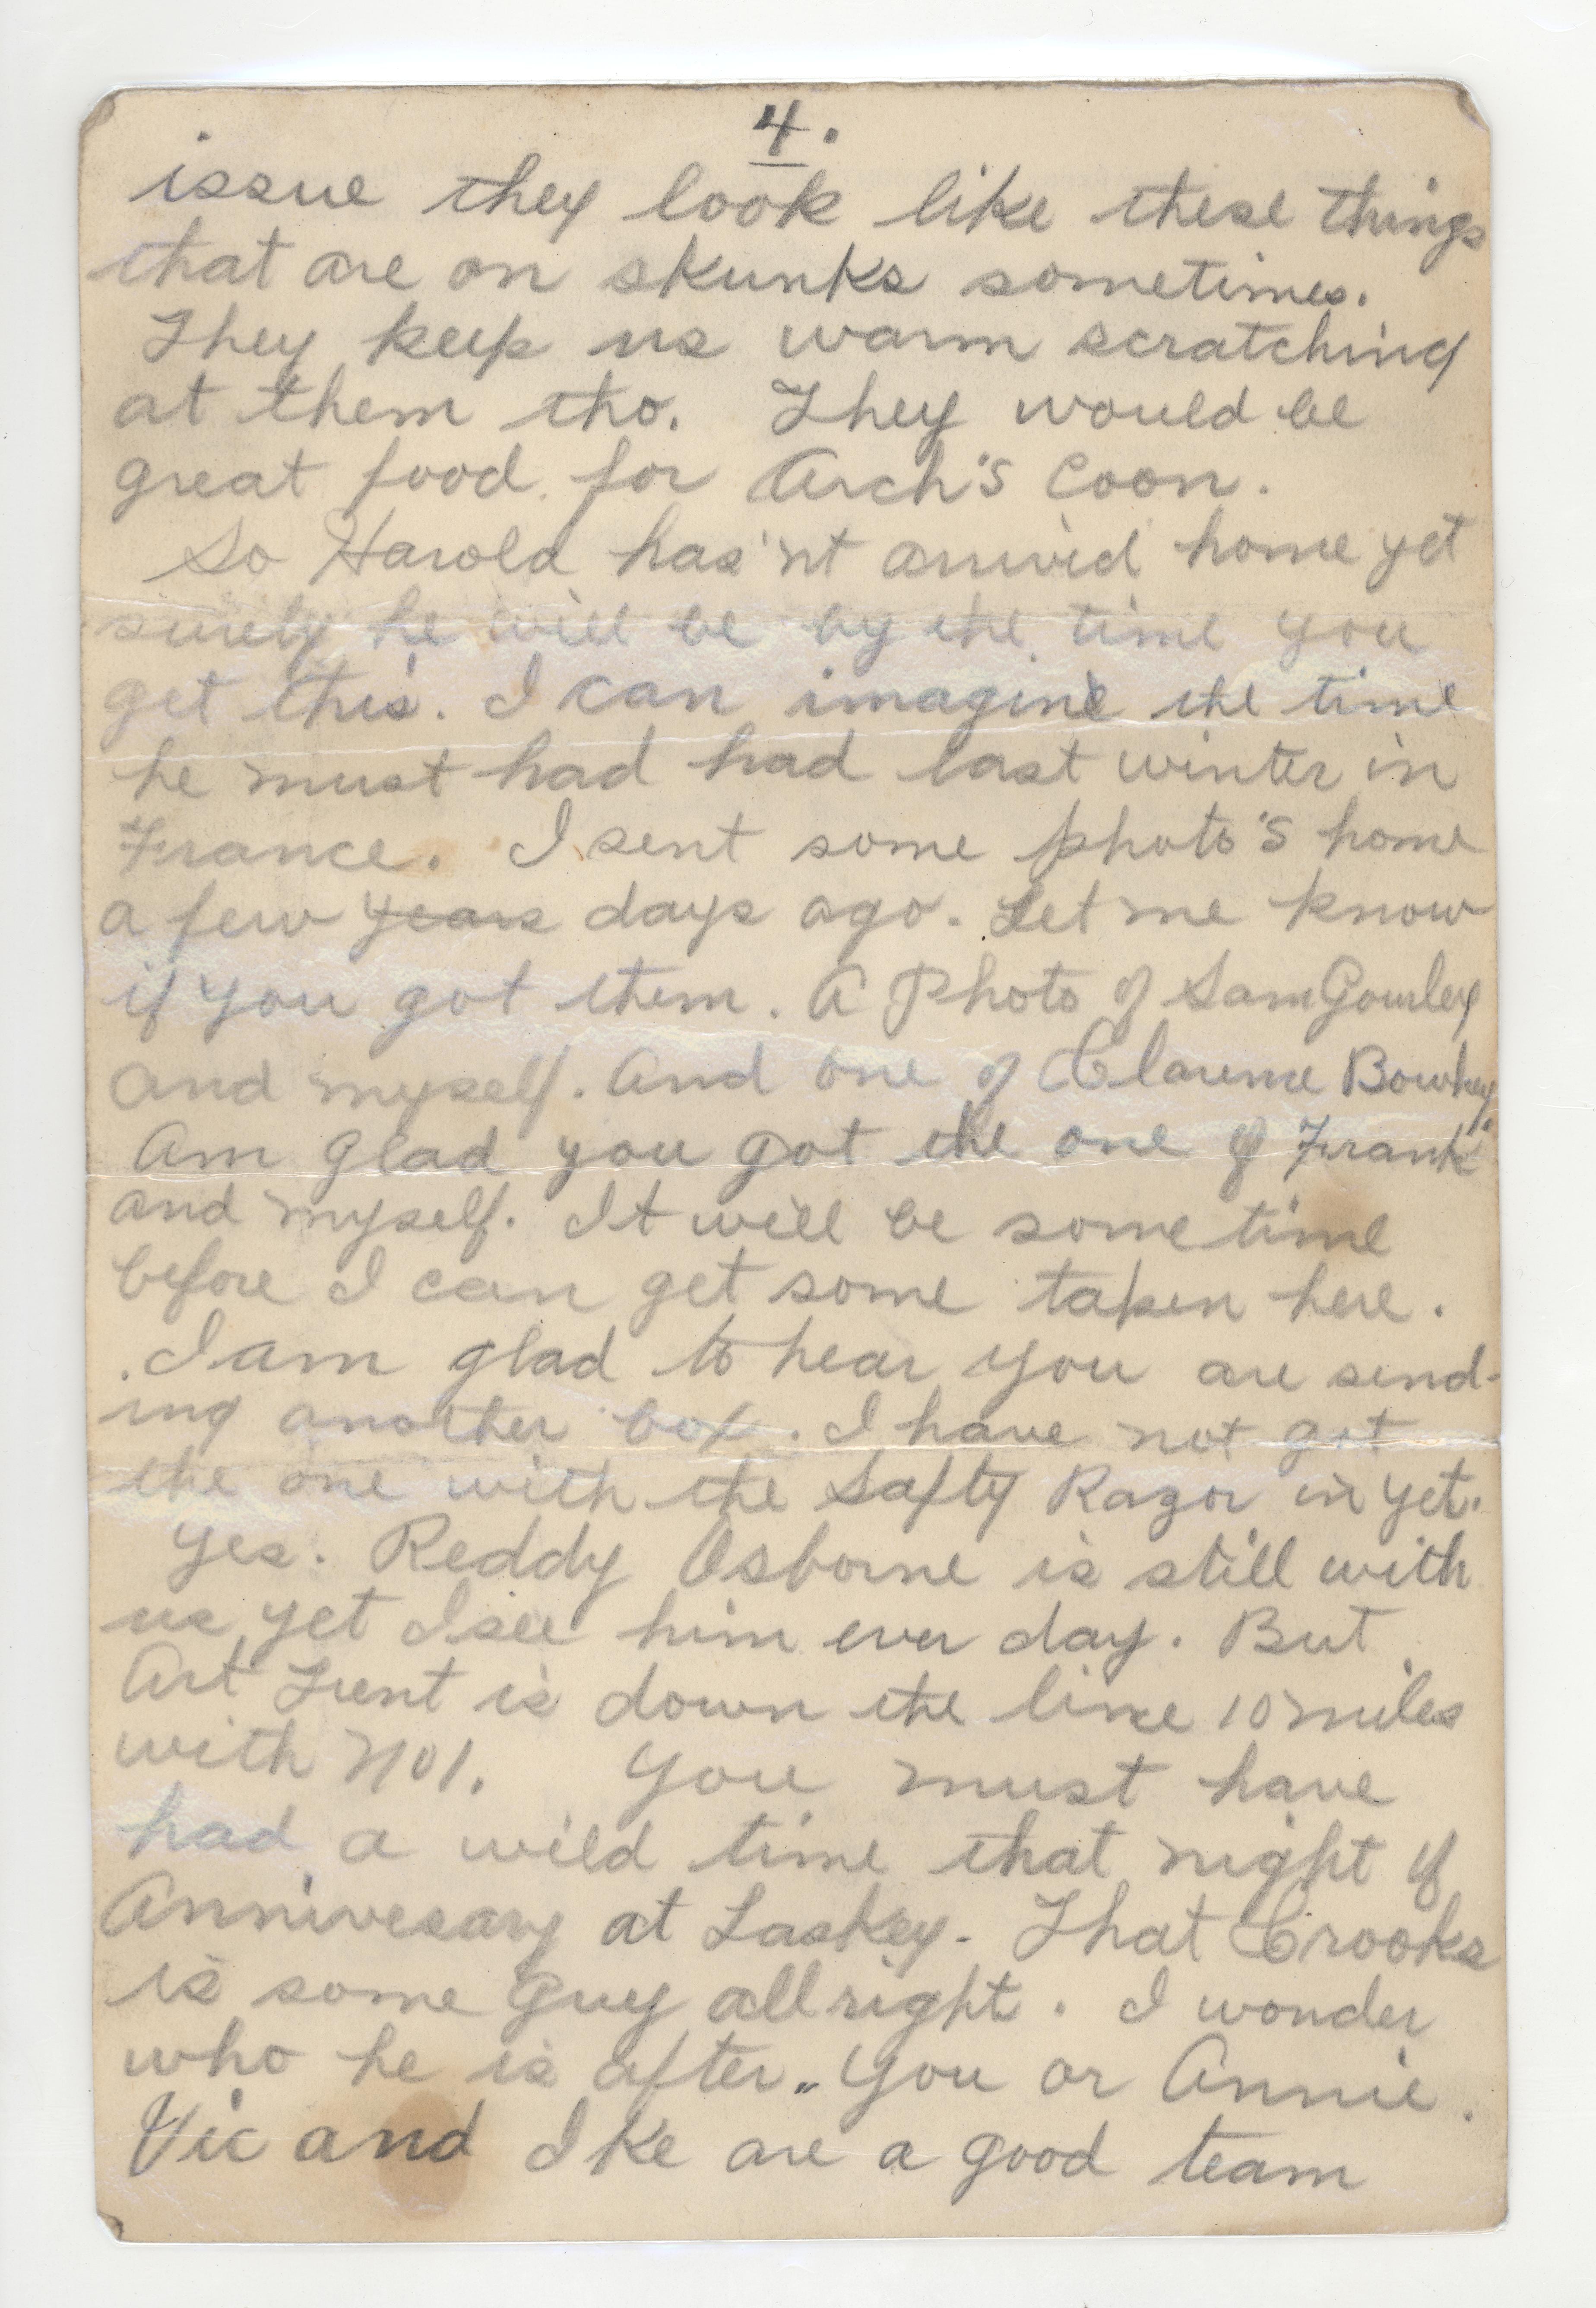 4.
issue they look like these things
that are on skunks sometimes.
They keep us warm scratching
at them tho. They would be
great food for Arch's Coon.
So Harold has'nt arrived home yet
surely he will be by the time you
get this. I can imagine the time
he must had had last winter in
France. I sent some photo's home
a few years days ago. Let me know
if you got them. A Photo of Sam Gourley
and myself. And one of Clarence Bowhey.
Am glad you got the one of Frank
and myself. It will be some time
before I can get some taken here.
I am glad to hear you are send-
ing another box. I have not got
the one with the Safty Razor in yet.
Yes. Reddy Osborne is still with
us yet I see him ever day. But
Art is down the line 10 miles
with No 1. You must have
had a wild time that night of
Annivesary at Laskey. That Crooks
is some Guy allright. I wonder
who he is after. „ You or Annie.
Vic and Ike are a good team